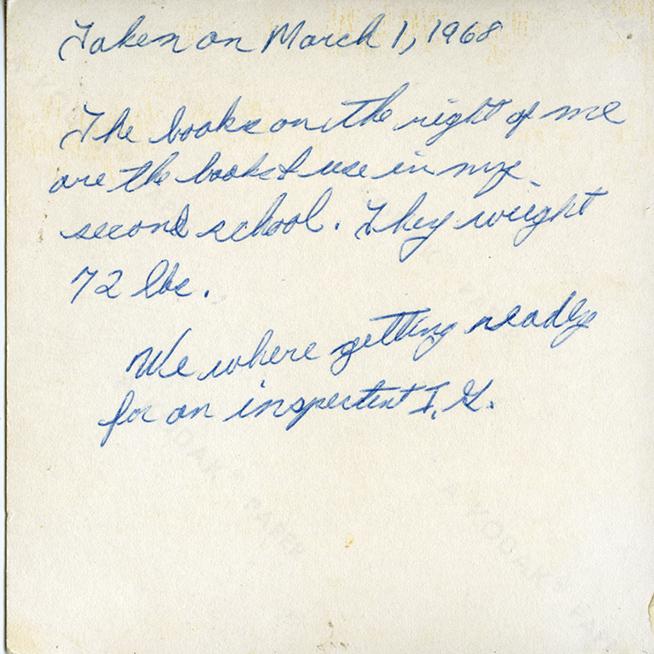 Taken on March 1, 1968
The books on the right of me
are the books I use in my
second school. They wieght
72 lbs.
We where getting ready
for an inspectent I, G.
A KODAK PAPER
KODAK PAPER